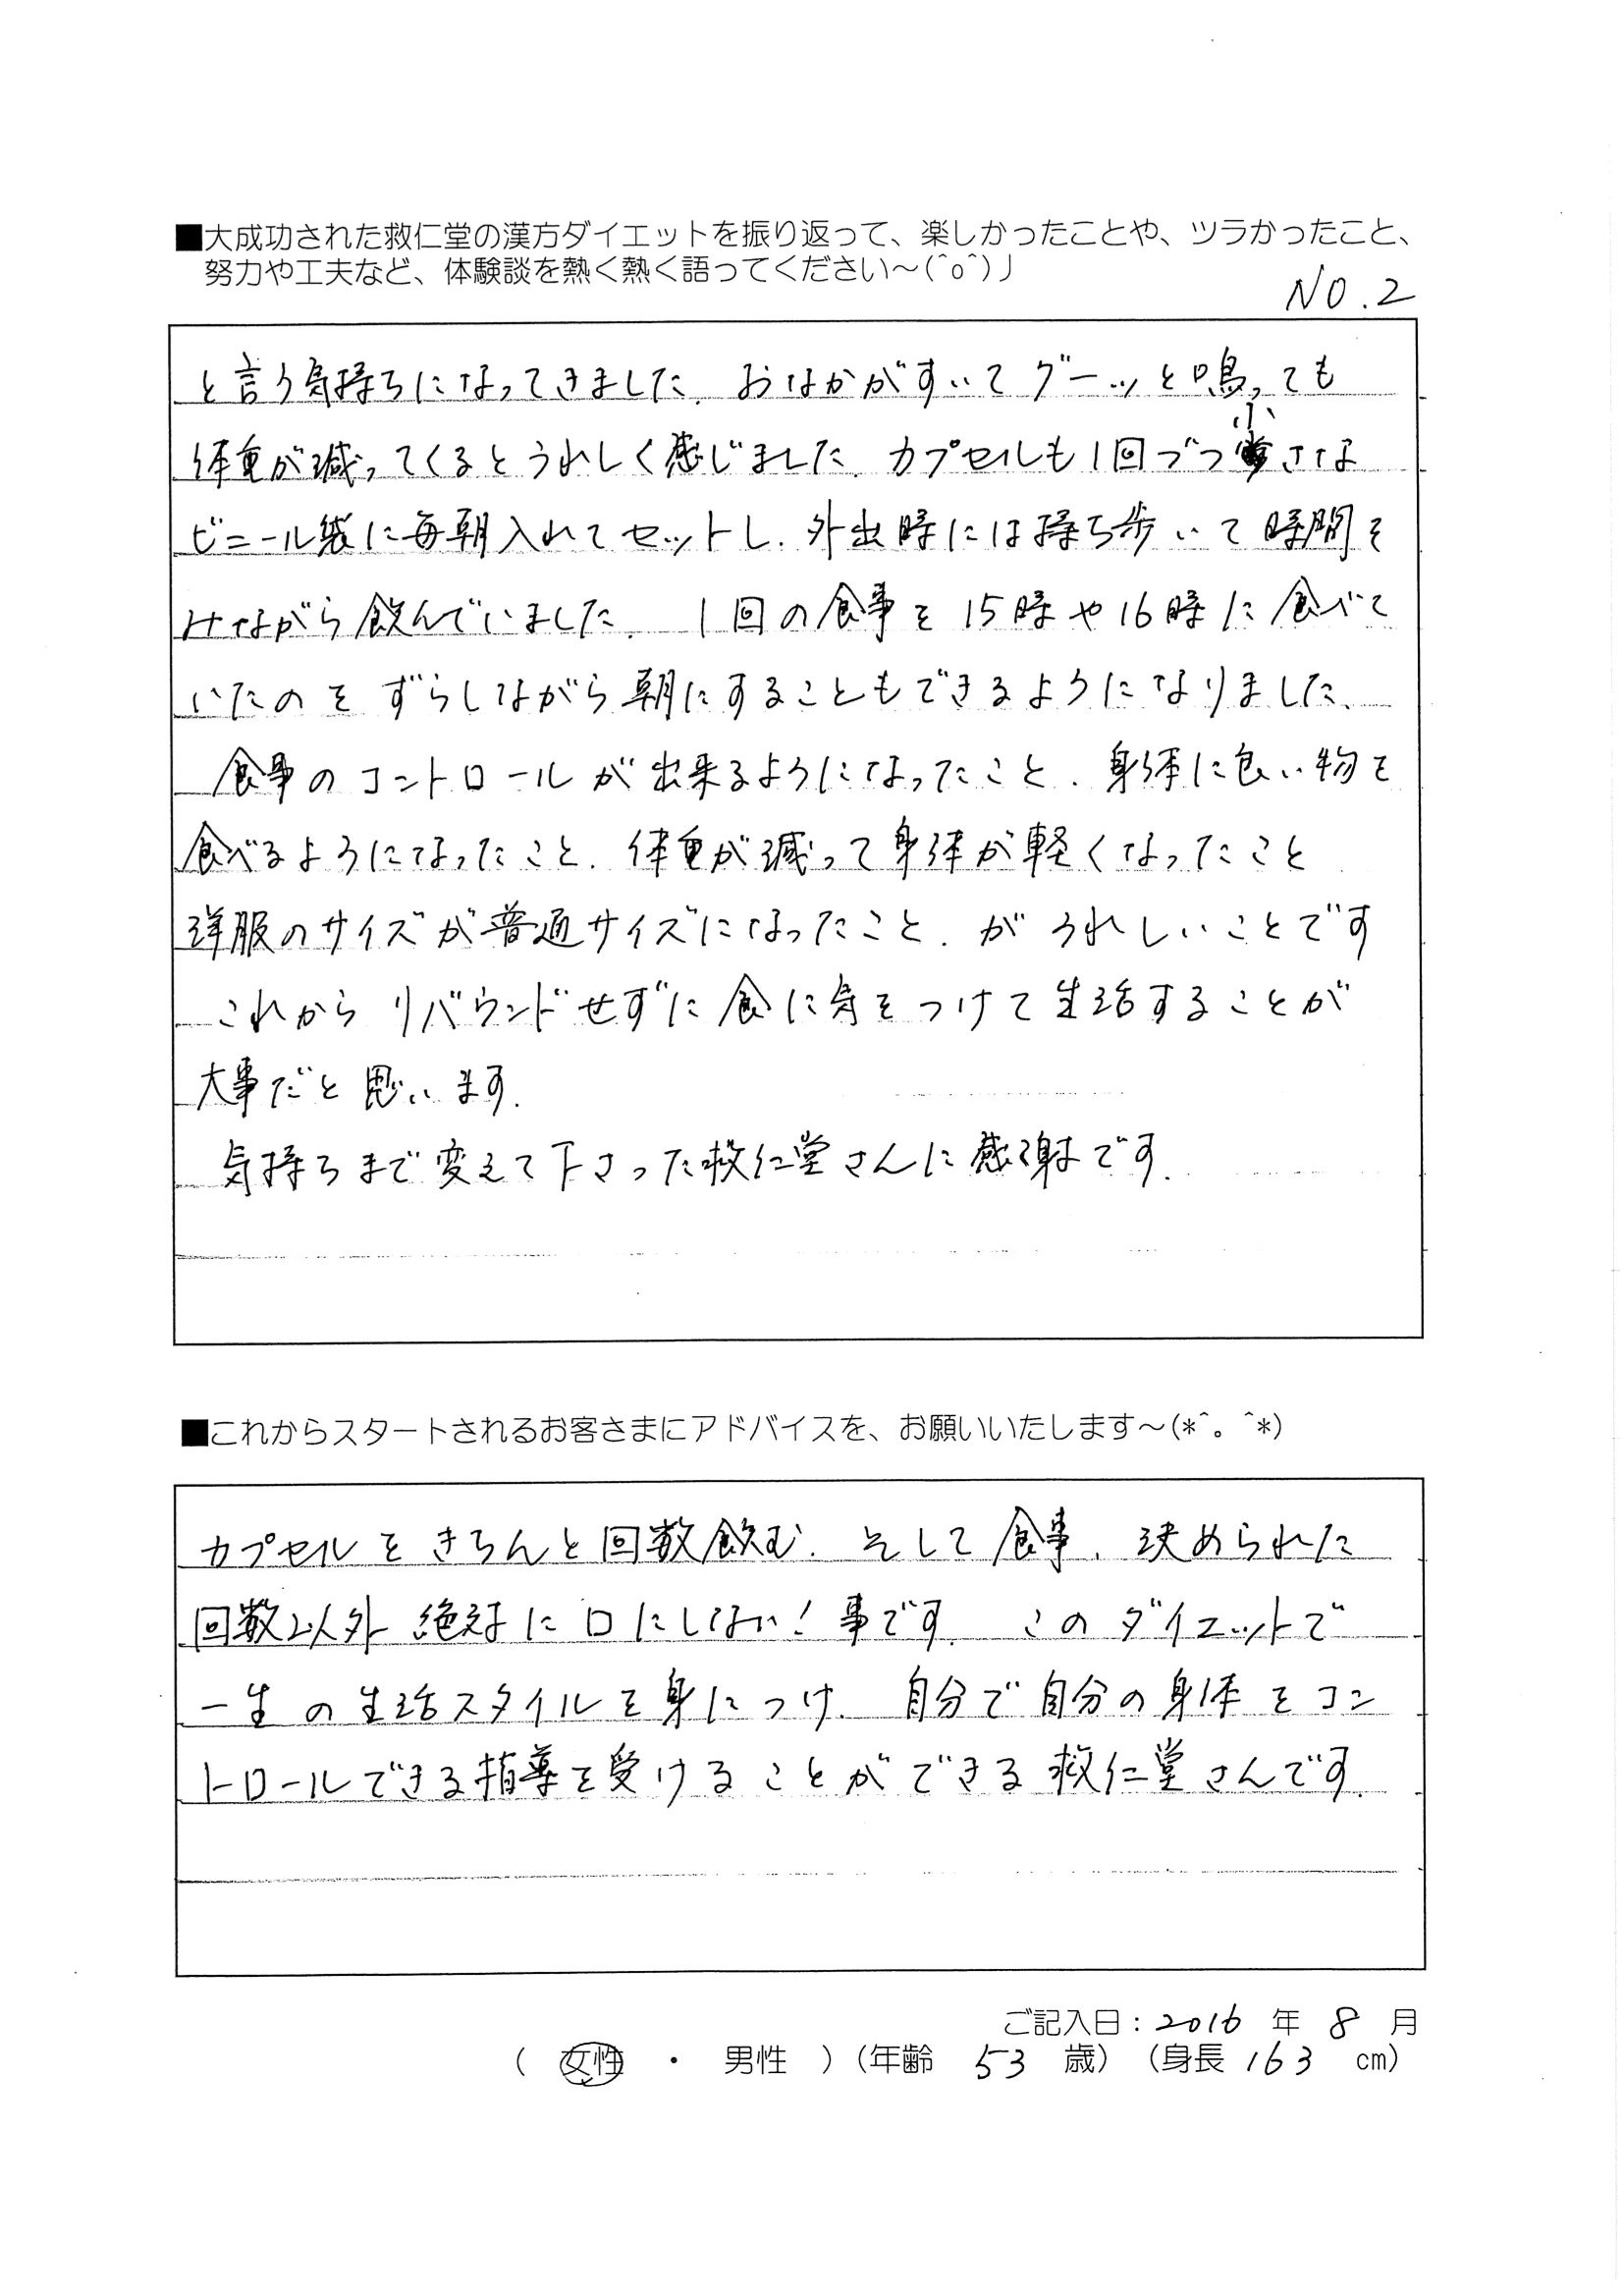 ■大成功された救仁堂の漢方ダイエットを振り返って、楽しかったことや、ツラかったこと、
努力や工夫など、体験談を熱く熱く語ってください～(^o^)丿
NO.2
と言う気持ちになってきました。おなかがすいてグーッと鳴っても
体重が減ってくるとうれしく感じました。カプセルも1回づつ小さな
ビニール袋に毎朝入れてセットし、外出時には持ち歩いて時間を
みながら飲んでいました。1回の食事を15時や16時に食べて
いたのをずらしながら朝にすることもできるようになりました。
食事のコントロールが出来るようになったこと、身体に良い物を
食べるようになったこと、体重が減って身体が軽くなったこと
洋服のサイズが普通サイズになったこと、がうれしいことです
これからリバウンドせずに食に気をつけて生活することが
大事だと思います。
気持ちまで変えて下さった救仁堂さんに感謝です。
■これからスタートされるお客さまにアドバイスを、お願いいたします～(*^。^*)
カプセルをきちんと回数飲む。そして食事、決められた
回数以外絶対に口にしない！事です。このダイエットで
一生の生活スタイルを身につけ、自分で自分の身体をコン
トロールできる指導を受けることができる救仁堂さんです。
ご記入日：2016年8月
（女性・男性）（年齢53歳）（身長163cm）